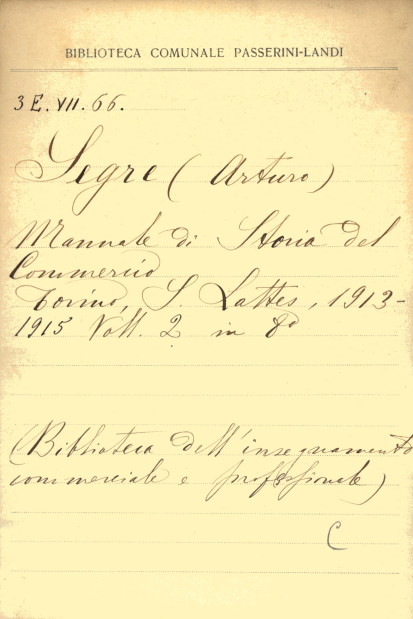 BIBLIOTECA COMUNALE PASSERINI-LANDI
3 E. VII. 66.
Segre (Arturo)
Manuale di Storia del
Commercio
Torino, S. Lattes, 1913-
1915 Voll. 2 in 8º
(Biblioteca dell'insegnamento
commerciale e professionale)
C